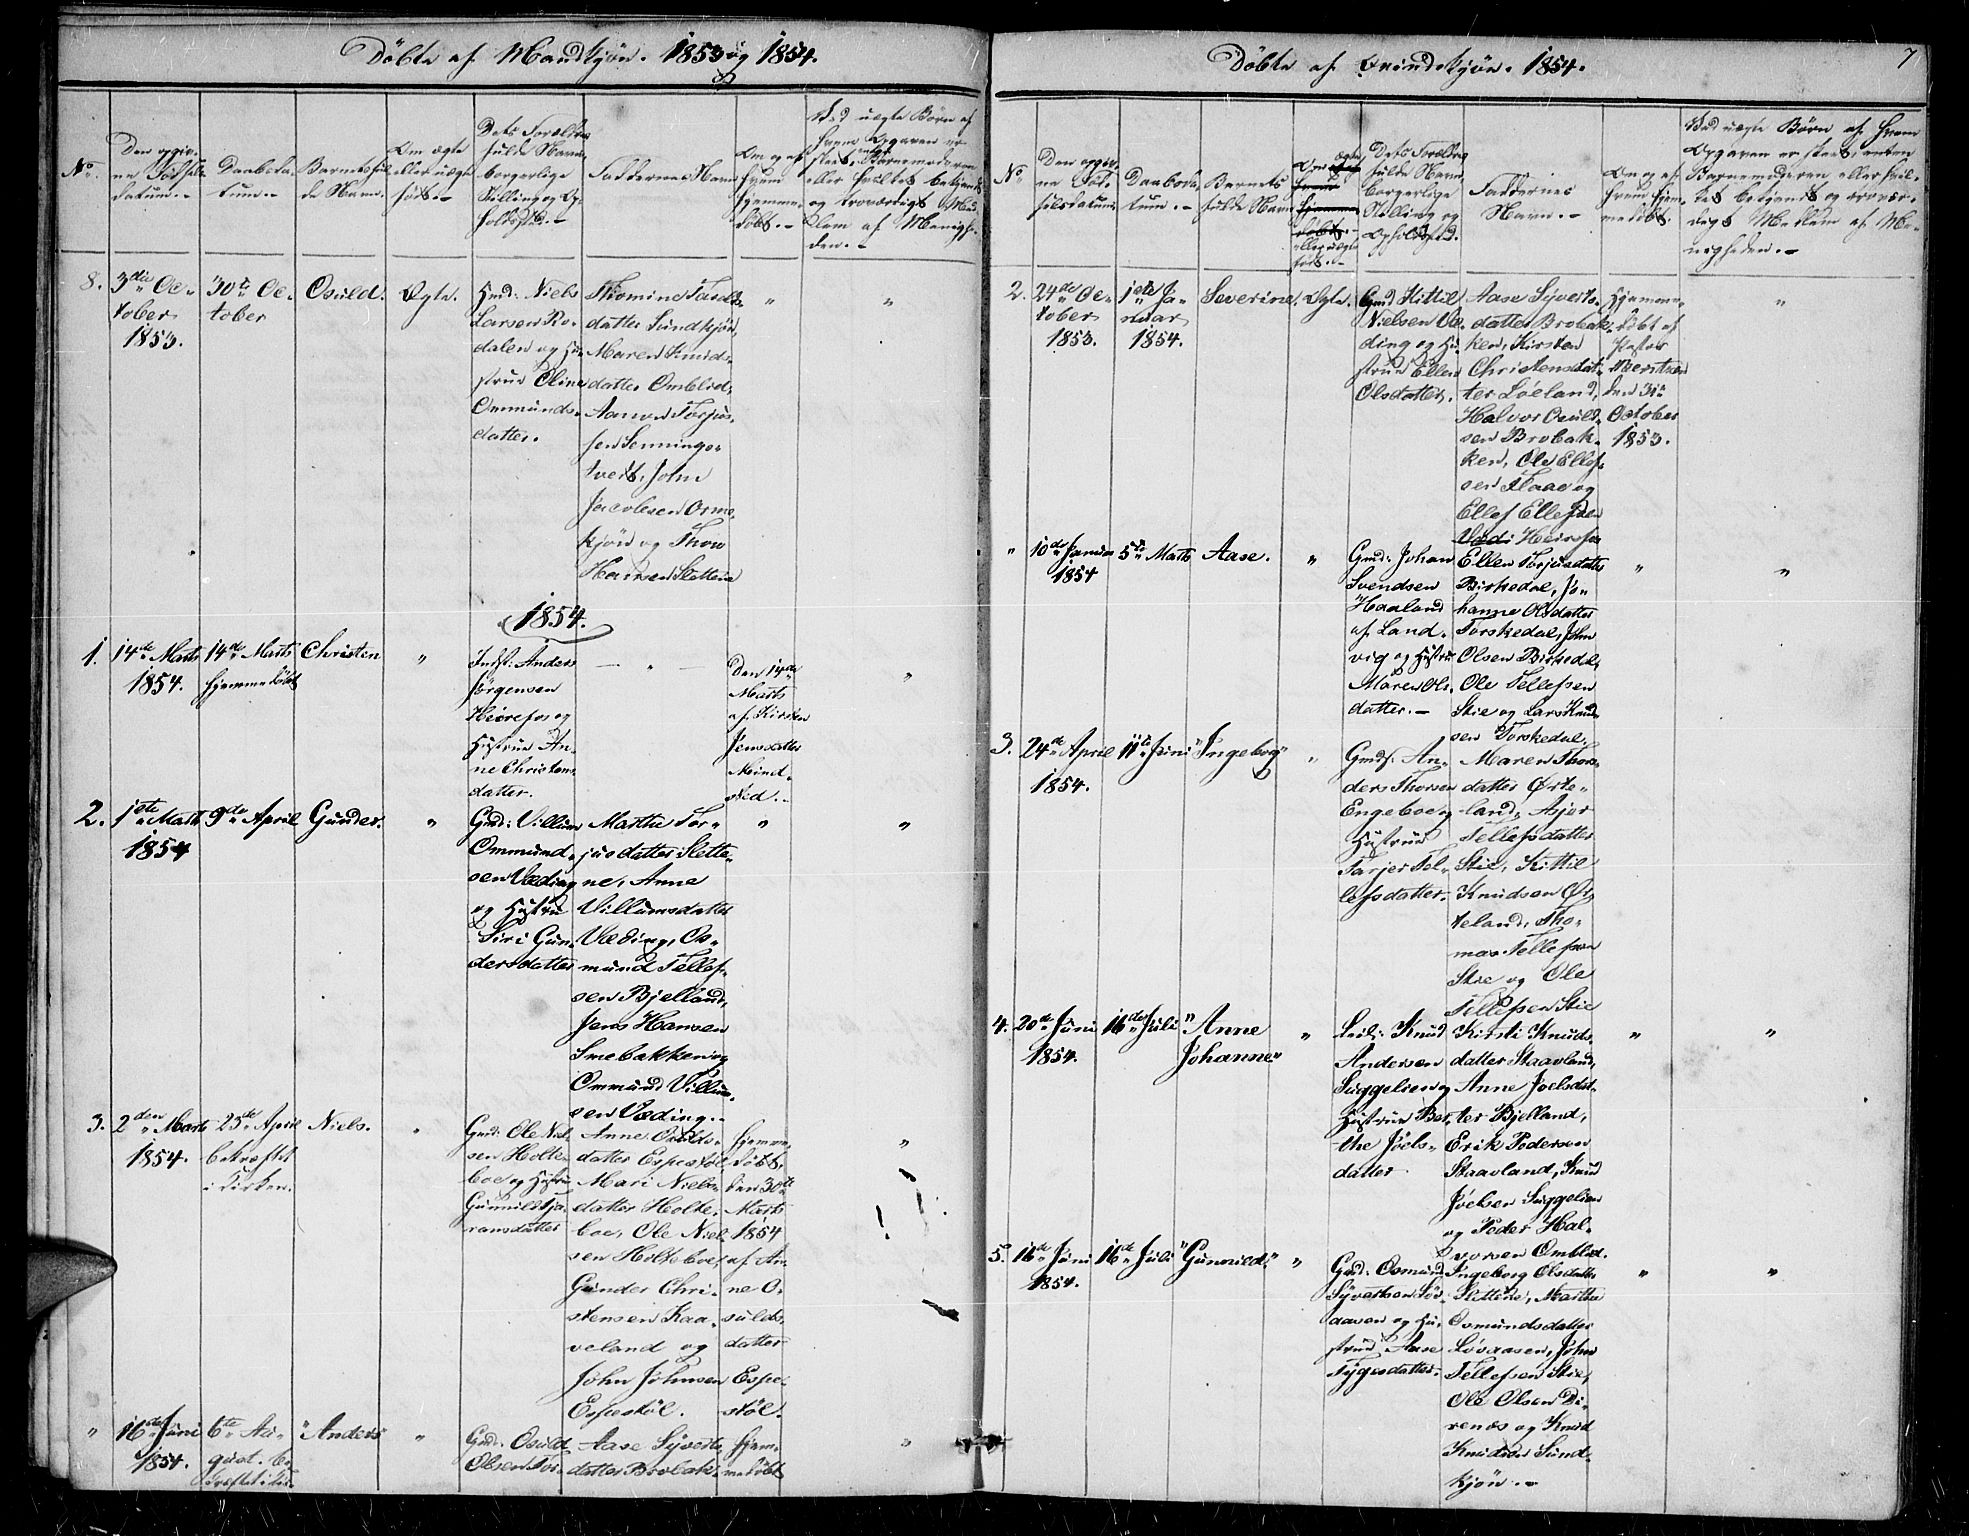 Döbte af Mandkjøn. 1853 og 1854.
No.
Den opgiv-
ne Födsels-
datum.-
Daabsda-
tum.-
Barnets ful-
de Navn.
Om ægte
eller uægte
født.-
Dets Forældres
fulde Navn,
borgerlige
Stilling og Op-
holdssted.-
Faddernes Navn
Om og af
hvem
hjemme-
döbt.-
Ved uægte Børn af
hvem Opgaven er
skeet,
eller hvilket bekjendt
og troværdigt Med-
lem af Menighe-
den.-
8.
3die Oc-
tober
1853.
30te Oc-
tober
Osuld.
Ægte.
Gmd: Niels
Larsen Ro-
dalen og Hu-
strue Oline
Ommunds-
datter.
datter Sundkjön,
Maren Knuds-
datter Omblid,
Aanon Torjus-
sen
tvedt, John
Jacobsen Orme-
kjön og Thow
Hansen Slettene
1854.
1.
14de Marts
1854.
14de Marts
hjemmedöbt
Christen
"
Indst: Anders
Jörgensen
Heirefos og
Hustrue An-
ne Christens-
datter.
— " —
Den 14de
Marts
af Kirsten
Jensdatter
"
2.
1ste Marts
1854
9de April
Gunder.
"
Gmd: Villum
Ommund-
sen Væding
og Hustrue
Siri Gun-
dersdatter
Marthe Tor-
jusdatter Slette-
ne, Anne
Villumsdatter
Væding, Os-
mund Tellef-
sen Bjelland,
Jens Hansen
Smebakken og
Ommund Villum-
sen Væding.-
"
"
3.
2den Marts
1854.
25de April
bekræftet
i Kirken.
Niels.
"
Gmd: Ole Niel-
sen Holte-
boe og Hustrue
Gunnild Tja-
ransdatter
Anne Osulds-
datter Espestöl
Mari Niels-
datter Holte-
boe, Ole Niel-
sen Holteboe,
Gunder Chri-
stensen Kaa-
veland og
John Johnsen
Espestöl.
hjemme-
döbt
den 30te
Marts
1854
af An-
ne O-
sulds-
datter
Espe-
stöl.
"
"
16de Juni
1854.
6te Au-
gust. be-
kræftet i Kir-
"Anders
"
Gmd: Osuld
Olsen Tor-
Aase Syverts-
datter Brobak-
hjem-
medöbt
"
7
Döbte af Qvindekjön. 1854.
No
Den opgiv-
ne Föd-
selsdatum.
Daabsda-
tum.-
Barnets
fulde Navn
Om ægte
eller uægte
födt.-
Dets Forældres
fulde Navn,
borgerlige
Stilling og
Opholdssted.
Faddernes
Navn.-
Om og af
hvem hjem-
medöbt.
Ved uægte Børn af hvem
Opgaven er skeet, enten
Barnemoderen eller hvil-
ket bekjendt og trovær-
digt Medlem af Me-
nigheden.-
2.
24de Oc-
tober
1853.
1ste Ja-
nuar
1854.
Severine.
Ægte.
Gmd Kittil
Nielsen Væ-
ding og Hu-
strue Ellen
Olsdatter.
Aase Syverts-
datter Brobak-
ken, Kirsten
Christensdat-
ter Löeland,
Halvor Osuld-
sen Brobak-
ken, Ole Ellef-
sen Flaae og
Ellef Ellefsen
Hjemme-
döbt af
Pastor
den 31te
October
1853.
"
"
10de Januar
1854
5te Marts
Aase.
"
Gmd: Johan
Svendsen
Haaland
af Land-
vig og Hustrue
Maren Ols-
datter.-
Ellen Torjusdatter
Birkedal, Jo-
hanne Olsdatter
Torskedal, John
Olsen Birkedal,
Ole Tellefsen
Stie og Lars Knud-
sen Torskedal.
"
"
3.
24de April
1854.
11te Juni
"Ingeborg"
"
Gmd: An-
ders Thorsen
Engeboe og
Hustrue
Tarjer Tel-
lefsdatter.
Maren Thors-
datter Örte-
land, Asjer
Tellefsdatter
Stie, Kittil
Knudsen Ör-
teland, Tho-
mas Tellefsen
Stie og Ole
Tellefsen Stie
4.
20de Juni
1854.
16de Juli
"Anne
Johanne"
"
Leil: Knud
Andersen
Suggelien og
Hustrue Ber-
the Joels-
datter
Kirsti Knuds-
datter Staavland,
Anne Joelsdat-
ter Bjelland,
Erik Pedersen
Staavland, Knud
Joelsen Suggelien
og Peder Hal-
vorsen Omblid.
"
"
5.
16de Juni
1854.
16de Juli
"Gunnild."
"
Gmd: Osmund
Syvertsen Lös-
aasen og Hu-
strue Aase
Tygesdatter.
Ingeborg Olsdatter
Slettene, Marthe
Osmundsdatter
Lövaasen, John
Tellefsen Stie,
Ole Olsen Di-
renæs og Knud
Knudsen Sund-
kjön.-
"
"